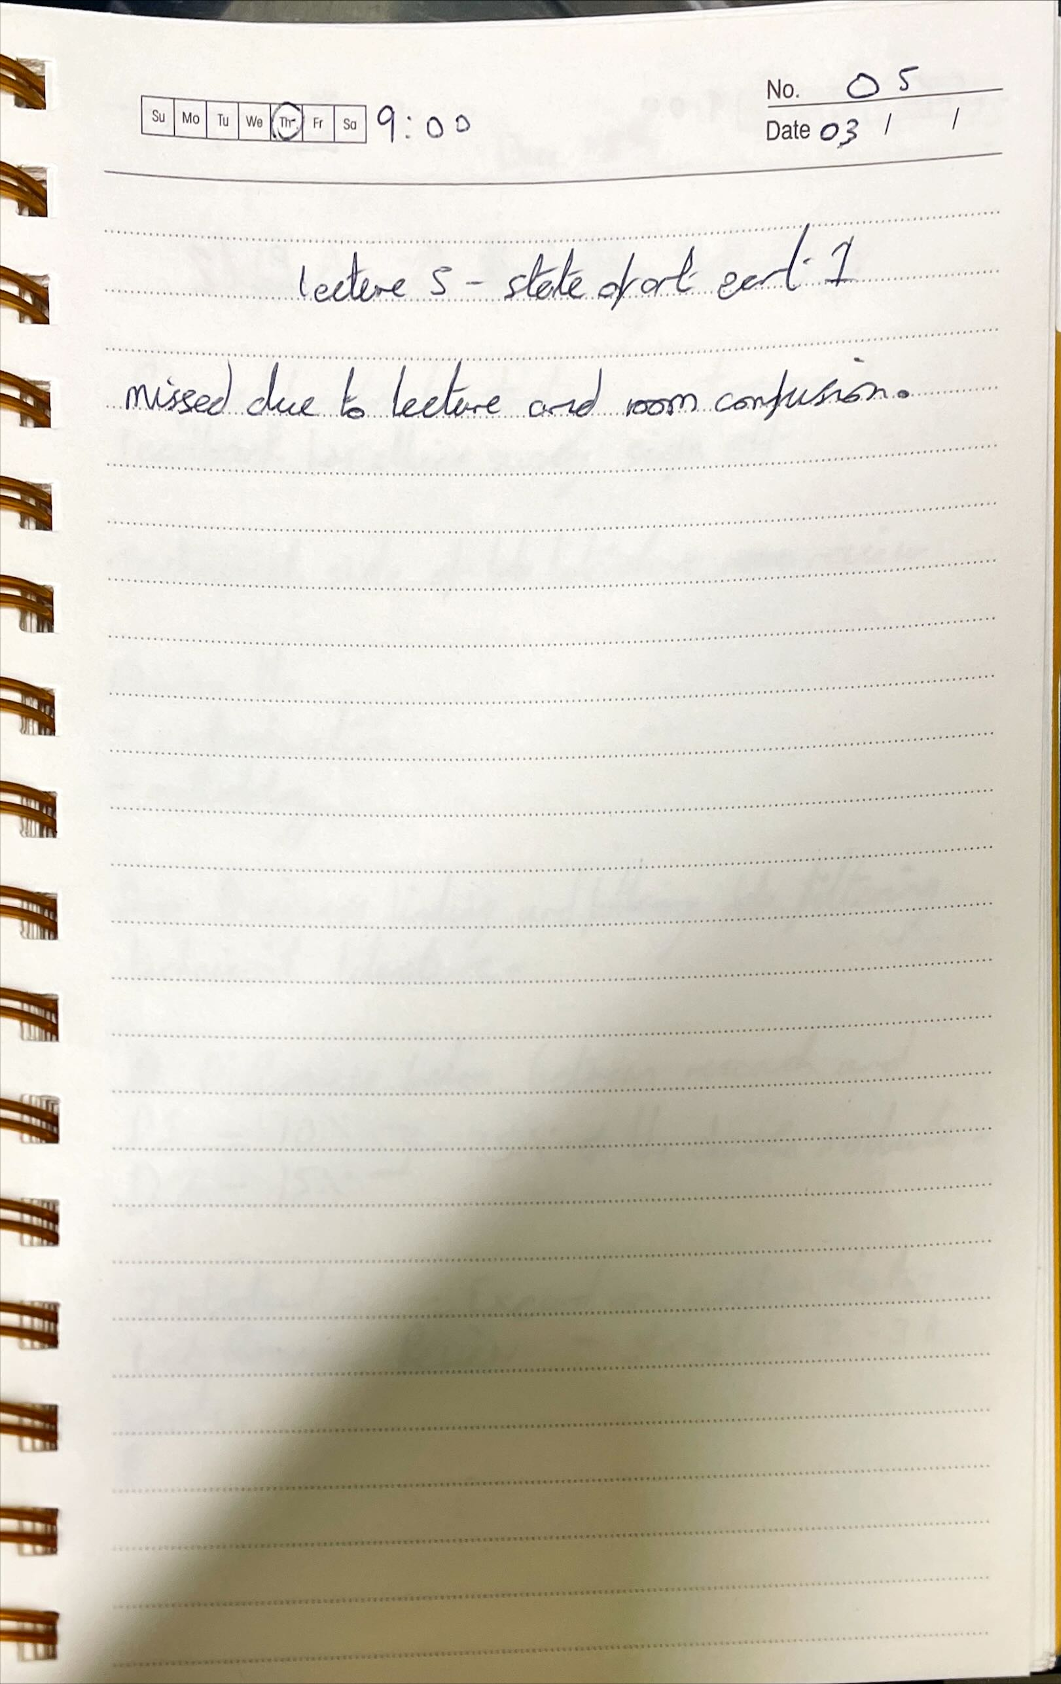 No. 05
Su Mo Tu We Th Fr Sa 9:00
Date 03 / /
lecture 5 - state of art part 1
missed due to lecture and room confusion.